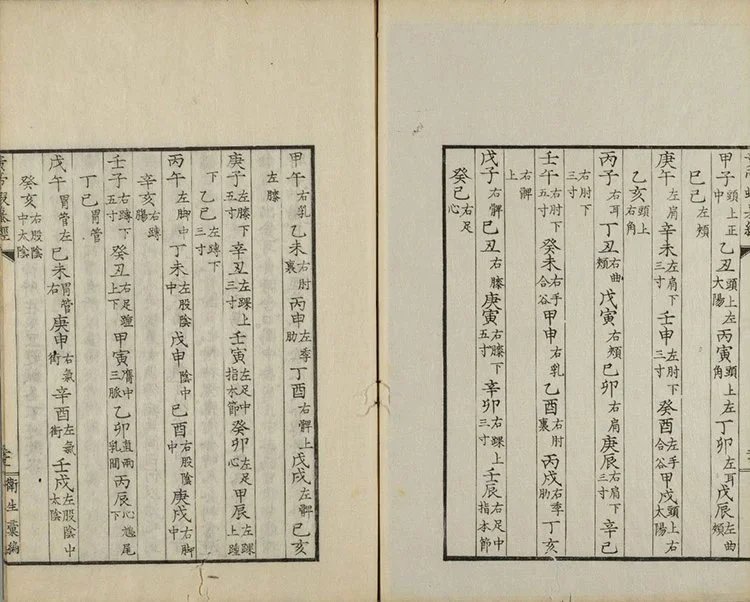 甲子頭上正中乙丑頭上左大陽丙寅頭上左角丁卯左耳戊辰左曲頰
巳巳左頰
庚午左肩辛未左肩下三寸壬申左肘下癸酉左手合谷甲戌頭上右太陽
乙亥頭上右角
丙子右耳丁丑右曲頰戊寅右頰巳卯右肩庚辰右肩下三寸辛巳
右肘下三寸
壬午右肘下五寸癸未右手合谷甲申右乳乙酉右肘裏丙戌右季肋丁亥
右髀上
戊子右髀巳丑右膝庚寅右膝下五寸辛卯右踝上三寸壬辰右足中指本節
癸巳右足心
甲午右乳乙未右肘裏丙申左季肋丁酉右髀上戊戌左髀巳亥
左膝
庚子左膝下五寸辛丑左踝上三寸壬寅左足中指本節癸卯左足心甲辰左踝上踵
下乙巳左踹下三寸
丙午左脚中丁未左股陰中戊申陰中巳酉右股陰中庚戌右脚中
辛亥右踹腸
壬子右踹下六寸癸丑右足踵上下甲寅膺中三脈乙卯直兩乳間丙辰心鳩尾下
丁巳胃管
戊午胃管左巳未胃管右庚申右氣街辛酉左氣街壬戌左股陰中太陰
癸亥右股陰中太陰
黃帝蝦蟇經
衛生彙編